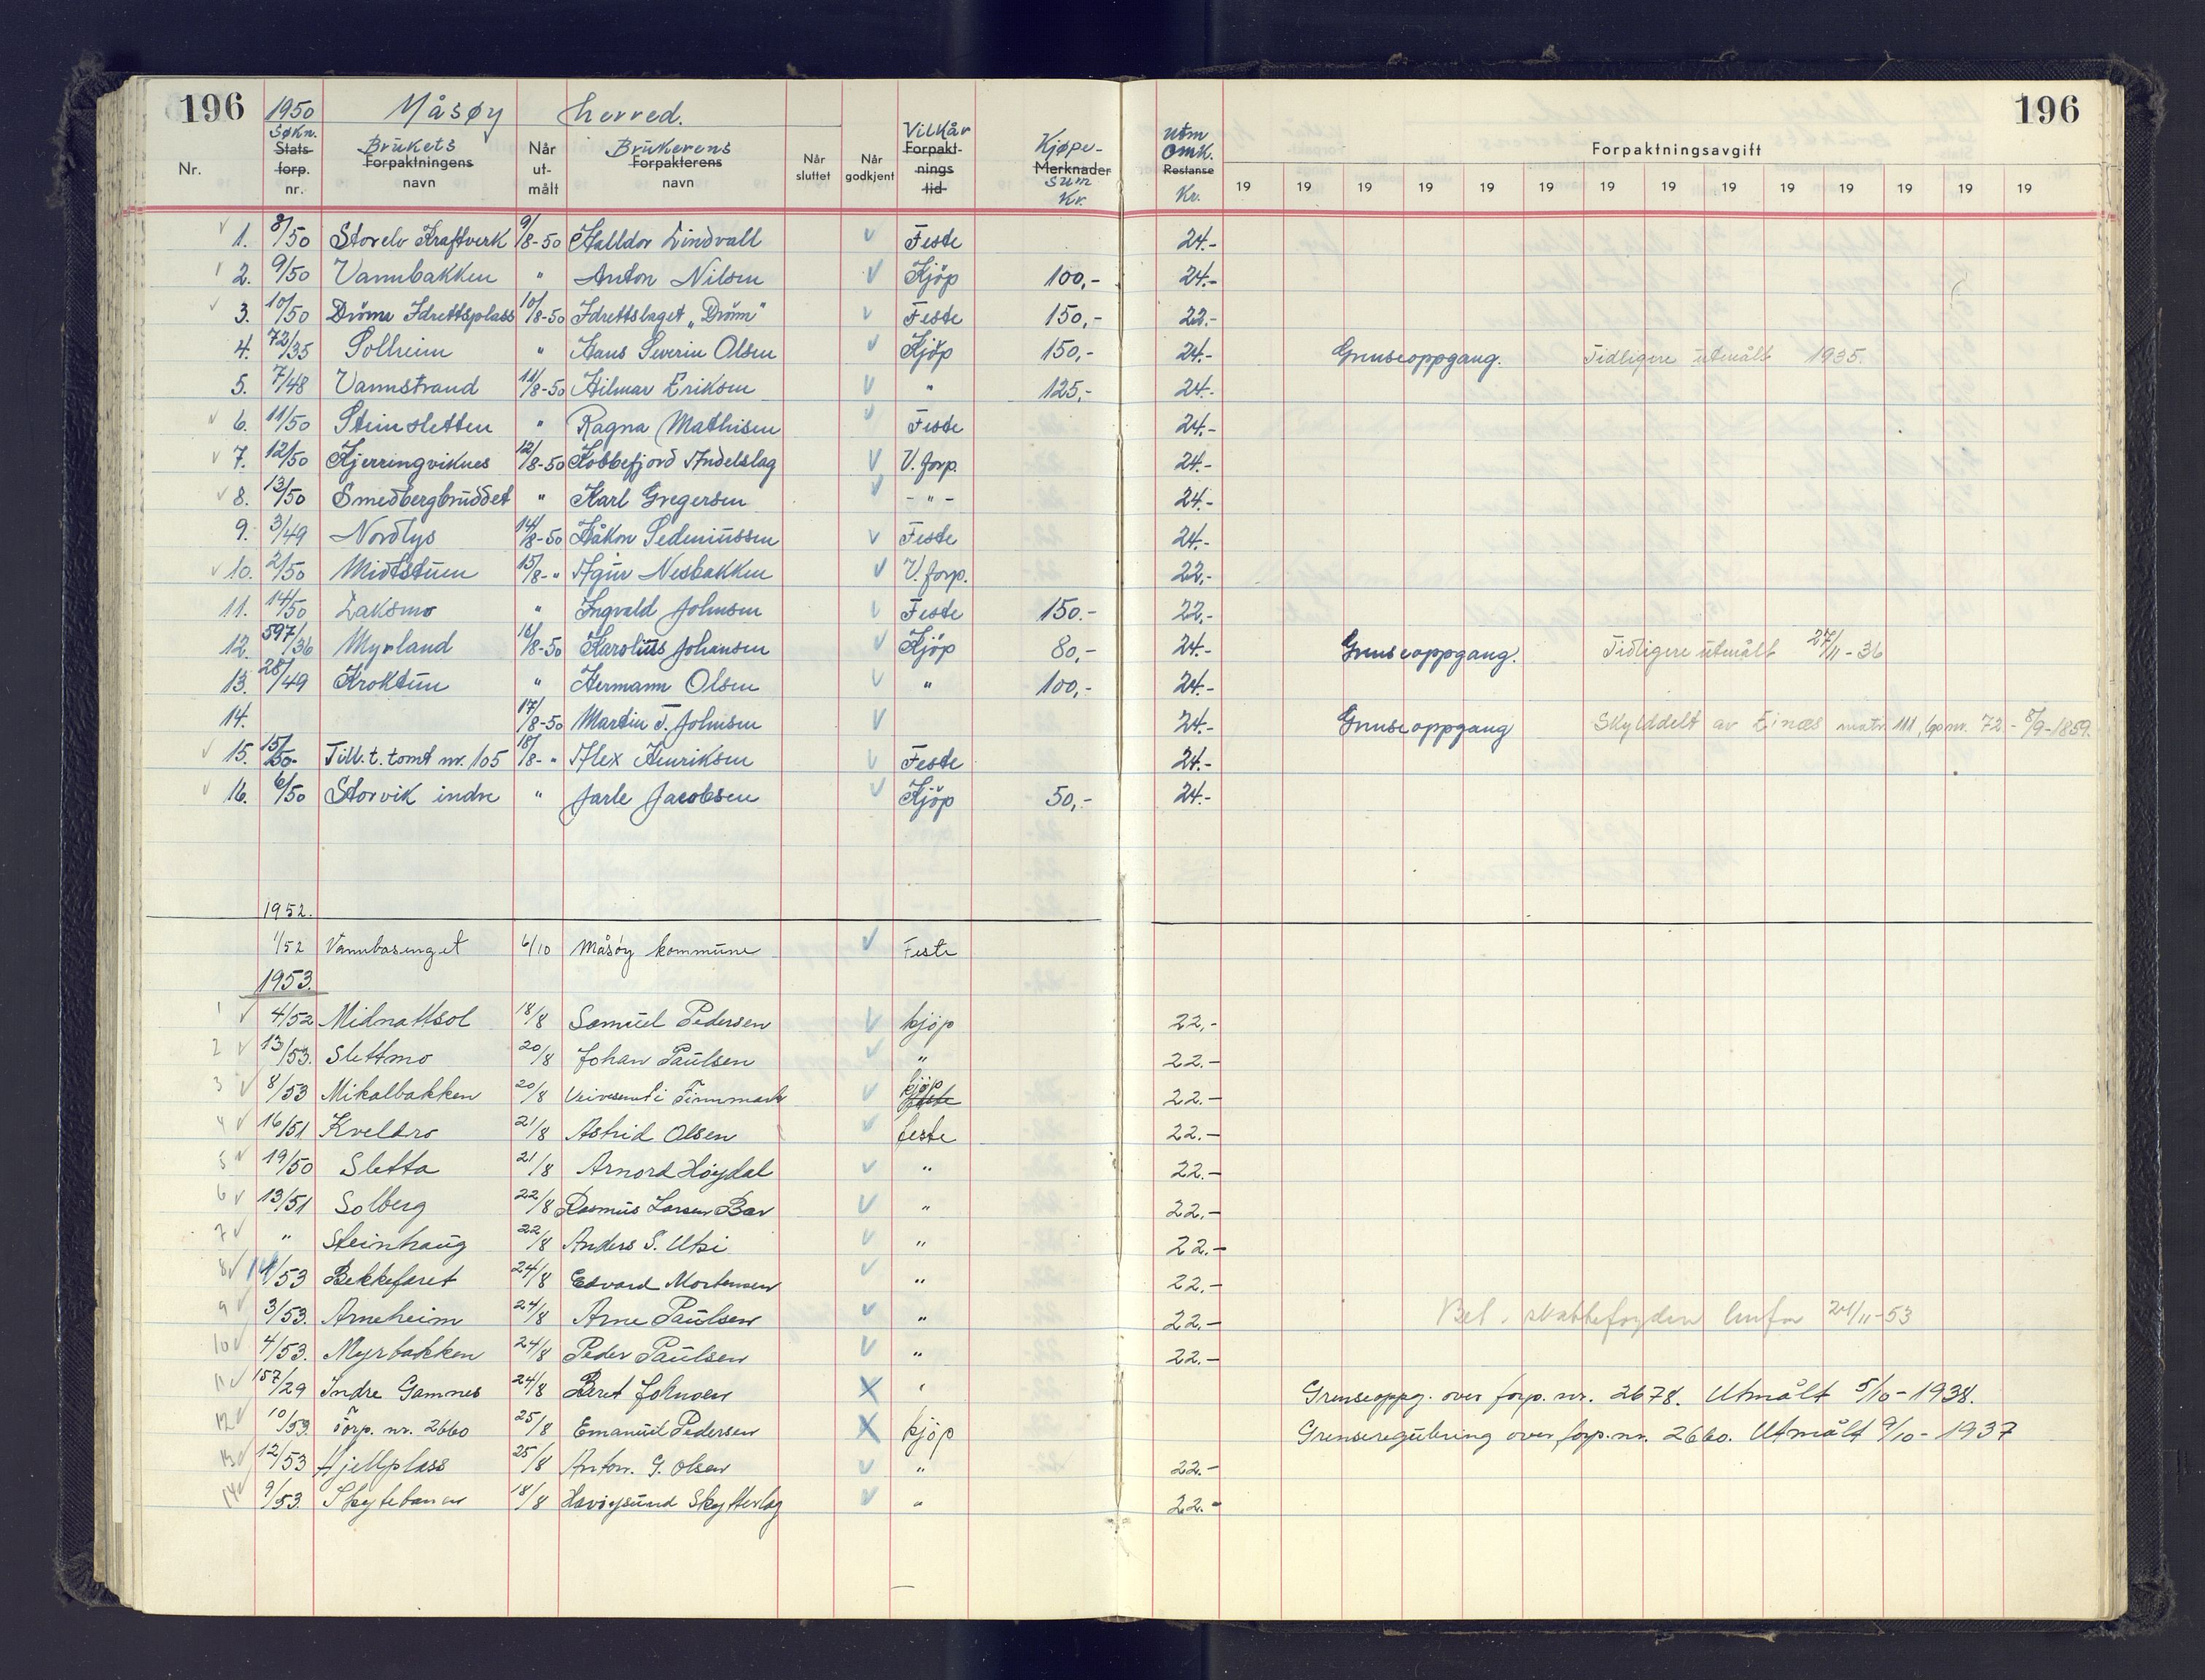 196 1950 Måsøy herred. 196
Nr. Søkn. Stats- forp. nr. Brukets Forpaktningens navn Når ut- målt Brukerens Forpakterens navn Når sluttet Når godkjent Vilkår Forpakt- nings tid Kjøpe- Merknader sum Kr. Utm omk. Restanse Kr. Forpaktningsavgift
19 19 19 19 19 19 19 19 19 19 19 19 19 19
1. 8/50 Storelv Kraftverk 9/8-50 Halldor Lindvall V Feste 24.-
2. 9/50 Vannbakken " Anton Nilsen V Kjöp 100,- 24.-
3. 10/50 Dröm Idrettsplass 10/8-50 Idrettslaget „Dröm" V Feste 150,- 22.-
4. 72/35 Solheim " Hans Severin Olsen V Kjöp 150,- 24.- Grenseoppgang. Tidligere utmålt 1935.
5. 7/48 Vannstrand 11/8-50 Hilmar Eriksen V " 125,- 24.-
6. 11/50 Steinsletten " Ragna Mathisen V Feste 24.-
7. 12/50 Kjerringviknes 12/8-50 Kobbefjord Andelslag V V. forp. 24.-
8. 13/50 Smedbergbruddet " Karl Gregersen V - " - 24.-
9. 3/49 Nordlys 14/8-50 Håkon Sedeniussen V Feste 24.-
10. 2/50 Midtstuen 15/8-" Agur Nesbakken V V. forp. 22.-
11. 14/50 Laksmo " Ingvald Johnsen V Feste 150.- 22.-
12. 597/36 Myrland 16/8-50 Karolius Johansen V Kjöp 80,- 24.- Grenseoppgang. Tidligere utmålt 27/11-36
13. 28/49 Kroktun " Hermann Olsen V " 100,- 24.-
14. 17/8-50 Martin T. Johnsen V 24.- Grenseoppgang Skylddelt av Einæs matr. 111, lpnr. 72 - 8/9-1859.
15. 15/50 Till. t. tomt nr. 105 18/8-" Alex Henriksen V Feste 24.-
16. 6/50 Storvik indre " Jarle Jacobsen V Kjöp 50,- 24.-
1952.
1/52 Vannbasenget 6/10 Måsøy kommune V Feste
1953.
1 V 4/52 Midnattsol 18/8 Samuel Pedersen V kjöp 22,-
2 V 13/53. Slettmo 20/8 Johan Paulsen V " 22.-
3 V 8/53 Mikalbakken 20/8 Veivesenet i Finnmark V kjöp feste 22.-
4 V 16/51 Kveldro 21/8 Astrid Olsen V feste 22.-
5 V 19/50 Sletta 21/8 Arnord Höydal V " 22.-
6 V 13/51 Solberg 22/8 Rasmus Larsen Bær V " 22.-
7 V " Steinhaug 22/8 Anders S. Utsi V " 22.-
8 V 14/53 Bekkefaret 24/8 Edvard Mortensen V " 22.-
9 V 3/53. Arneheim 24/8 Arne Paulsen V " 22.- Bet. skattefogden 24/11-53
10 V 4/53. Myrbakken 24/8 Peder Paulsen V " 22.-
11 V 157/29 Indre Gamnes 24/8 Beret Johnsen X " Grenseoppg. over forp. nr. 2678. Utmålt 5/10-1938.
12 V 10/53. Forp. nr. 2660 25/8 Emanuel Pedersen X kjöp Grenseregulering over forp. nr. 2660. Utmålt 9/10-1937
13 V 12/53 Hjellplass 25/8 Anton. G. Olsen V " 22.-
14 V 9/53. Skytebanen 18/8 Havöysund Skytterlag V " 22.-